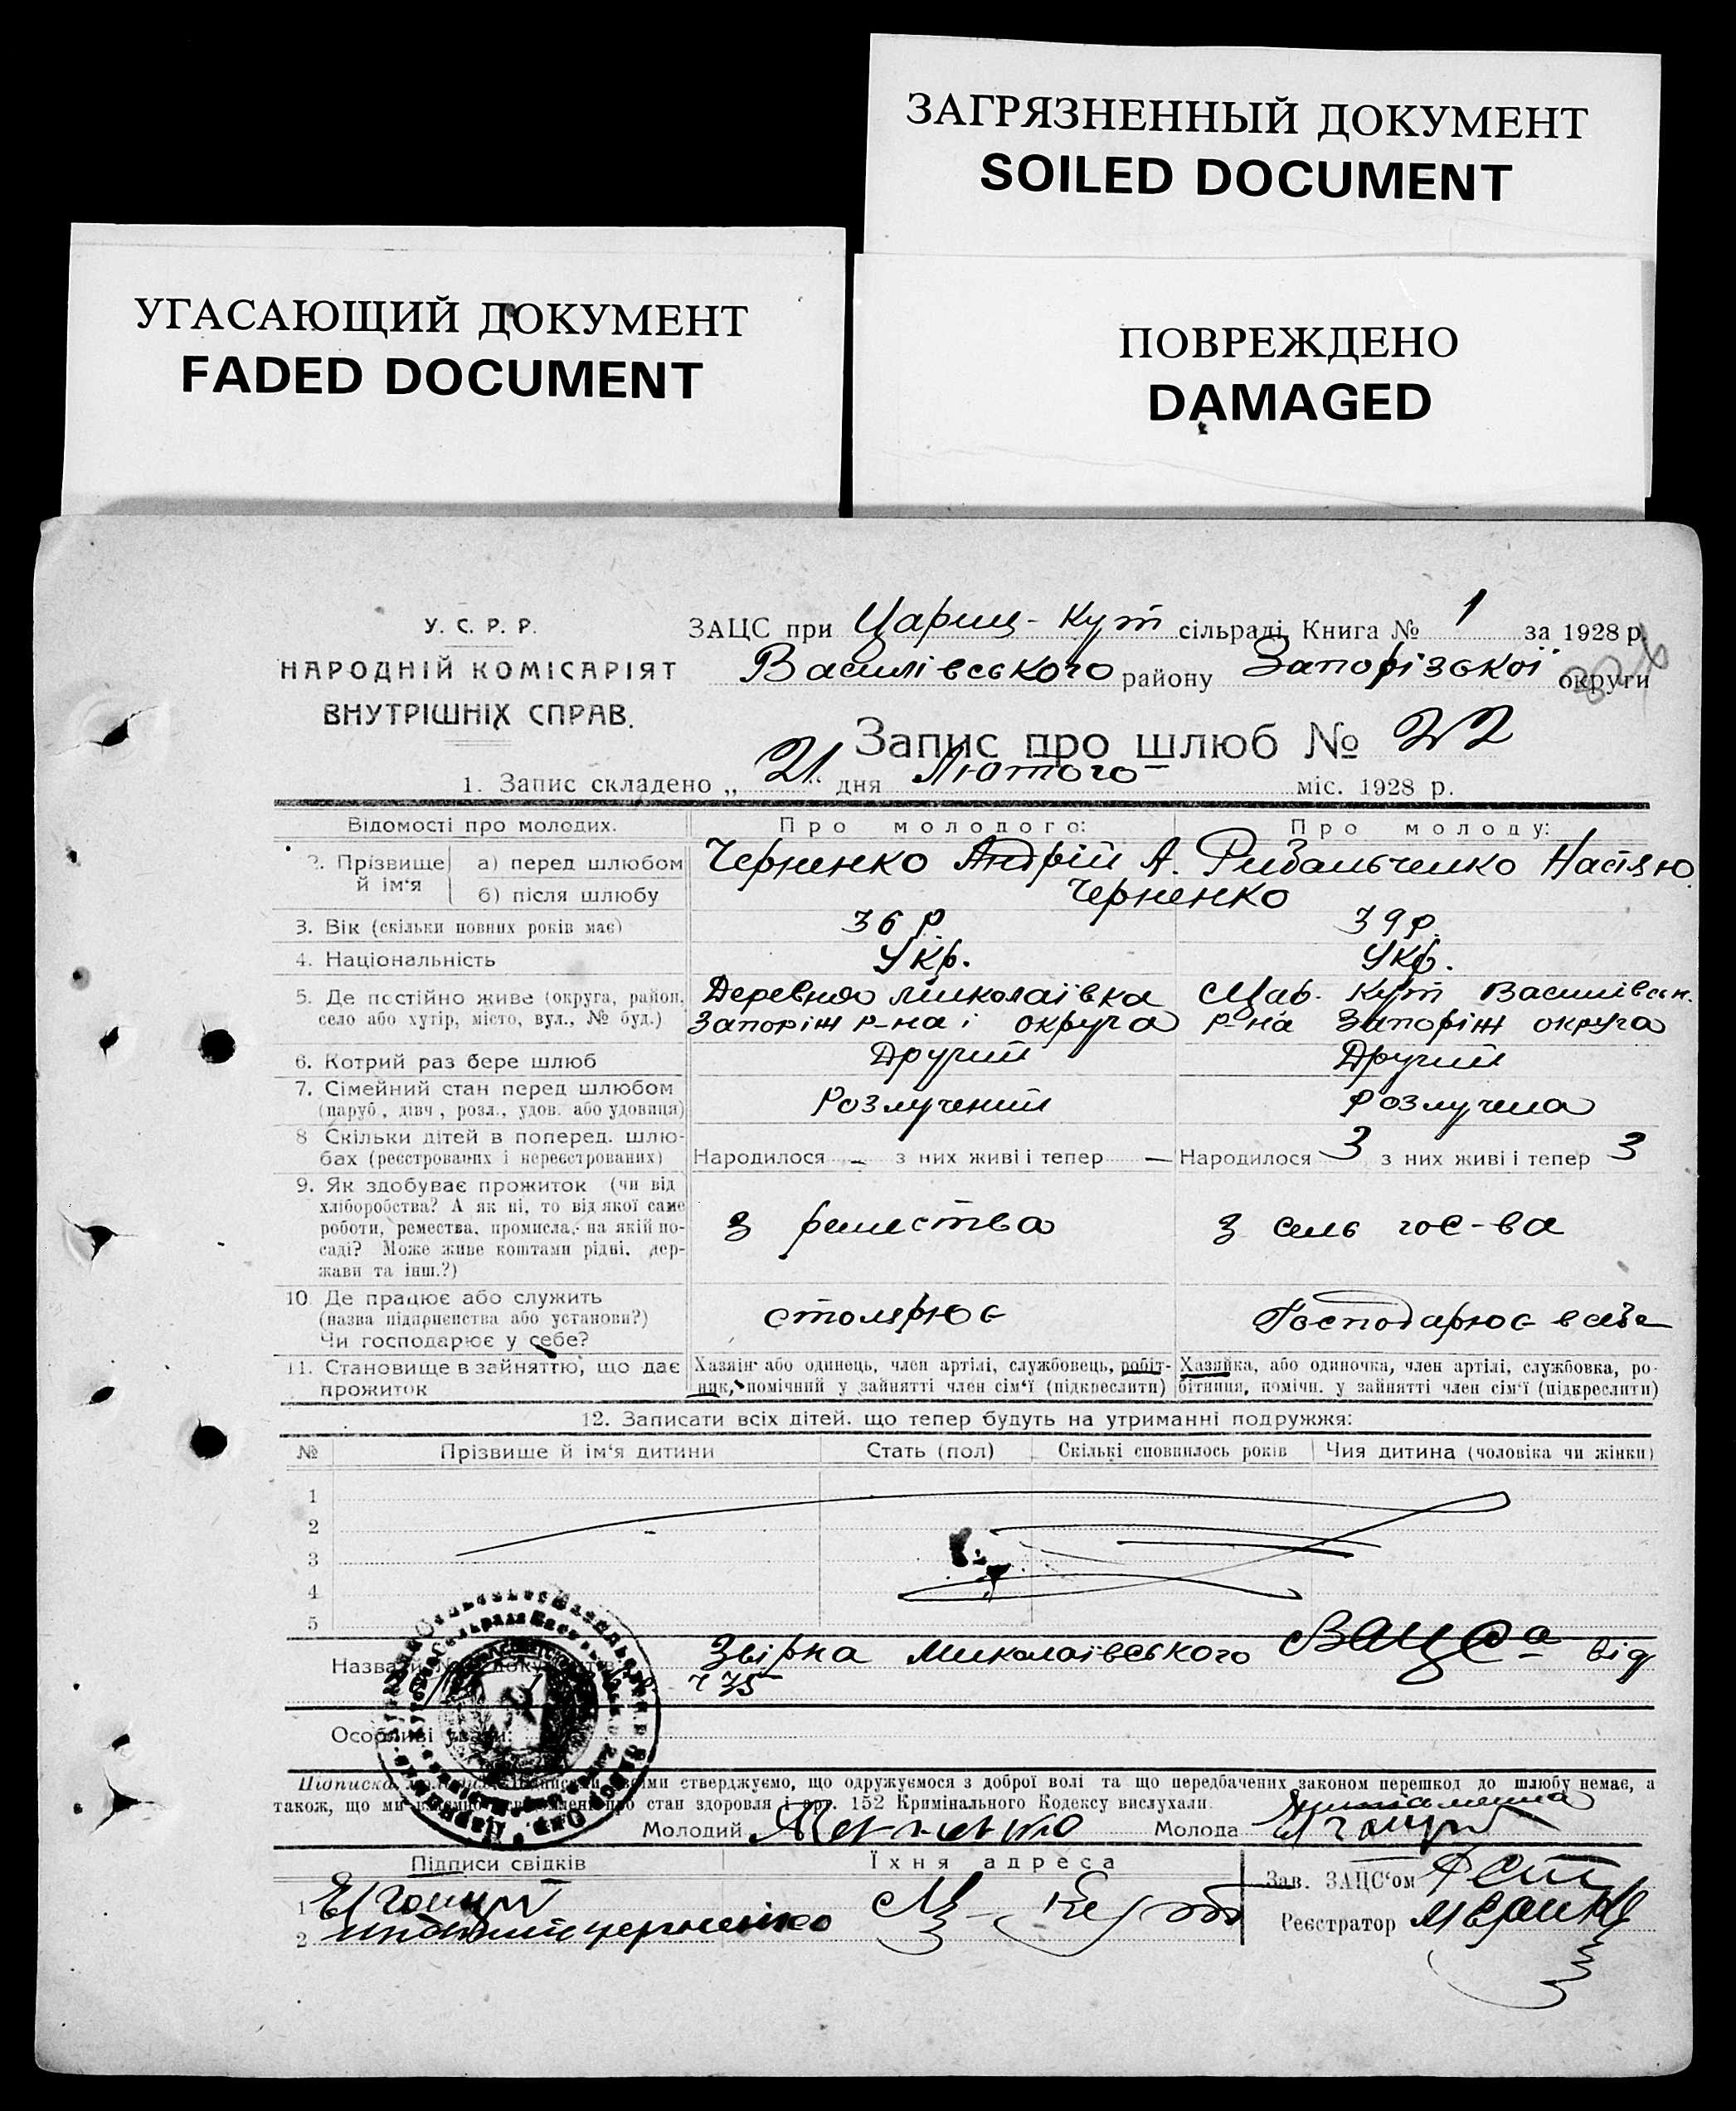 ЗАГРЯЗНЕННЫЙ ДОКУМЕНТ
SOILED DOCUMENT
УГАСАЮЩИЙ ДОКУМЕНТ
FADED DOCUMENT
ПОВРЕЖДЕНО
DAMAGED
У. С. Р. Р.
НАРОДНІЙ КОМІСАРІЯТ
ВНУТРІШНІХ СПРАВ.
ЗАЦС при Цариц-Кут сільраді Книга № 1 за 1928 р.
Василівського району Запорізської округи
Запис про шлюб № 22
1. Запис складено „ 21 “ дня Лютого міс. 1928 р.
Відомості про молодих. Про молодого: Про молоду:
2. Прізвище й ім‘я а) перед шлюбом Черненко Андрій А. Рибальченко Настя Ю.
б) після шлюбу Черненко
3. Вік (скільки повних років має) 36 р. 39 р.
4. Національність Укр. Укр.
5. Де постійно живе (округа, район, Деревня Миколаівка Цар. Кут Василівськ.
село або хутір, місто, вул., № буд.) Запоріж р-на і округа р-на Запоріж округа
6. Котрий раз бере шлюб Другий Другий
7. Сімейний стан перед шлюбом Розлучений Розлучена
(паруб., дівч., розл., удов. або удовиця)
8 Скільки дітей в поперед. шлю-
бах (реєстрованих і нереєстрованих) Народилося – з них живі і тепер – Народилося 3 з них живі і тепер 3
9. Як здобуває прожиток (чи від
хліборобства? А як ні, то від якої саме
роботи, ремества, промисла, на якій по- З ремества З сель гос-ва
саді? Може живе коштами рідні, дер-
жави та інш.?)
10. Де працює або служить
(назва підприємства або установи?) столярює Господарює в себе
Чи господарює у себе?
11. Становище в зайняттю, що дає Хазяїн або одинець, член артілі, службовець, робіт- Хазяйка, або одиночка, член артілі, службовка, ро-
прожиток ник, помічний у зайнятті член сім‘ї (підкреслити) бітниця, помічн. у зайнятті член сім‘ї (підкреслити)
12. Записати всіх дітей, що тепер будуть на утриманні подружжя:
№ Прізвище й ім‘я дитини Стать (пол) Скількі сповнилось років Чия дитина (чоловіка чи жінки)
1
2
3
4
5
Назва Звірка Миколаівського Зацса від
Ч 75
Особливі
стверджуємо, що одружуємося з доброї волі та що передбачених законом перешкод до шлюбу немає, а
також, що ми про стан здоровля і арт. 152 Кримінального Кодексу вислухали.
Молодий Молода
Підписи свідків Їхня адреса Зав. ЗАЦС‘ом
1
2 черненко Реєстратор